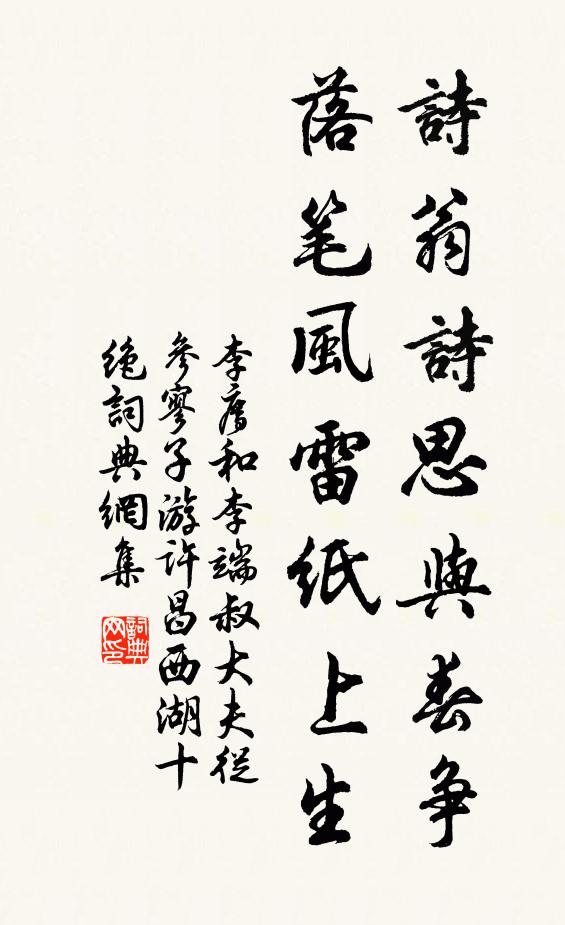 詩翁詩思與春争
落笔風雷紙上生
李廌和李端叔大夫從
參寥子游許昌西湖十
绝詞典網集
詞典
网印